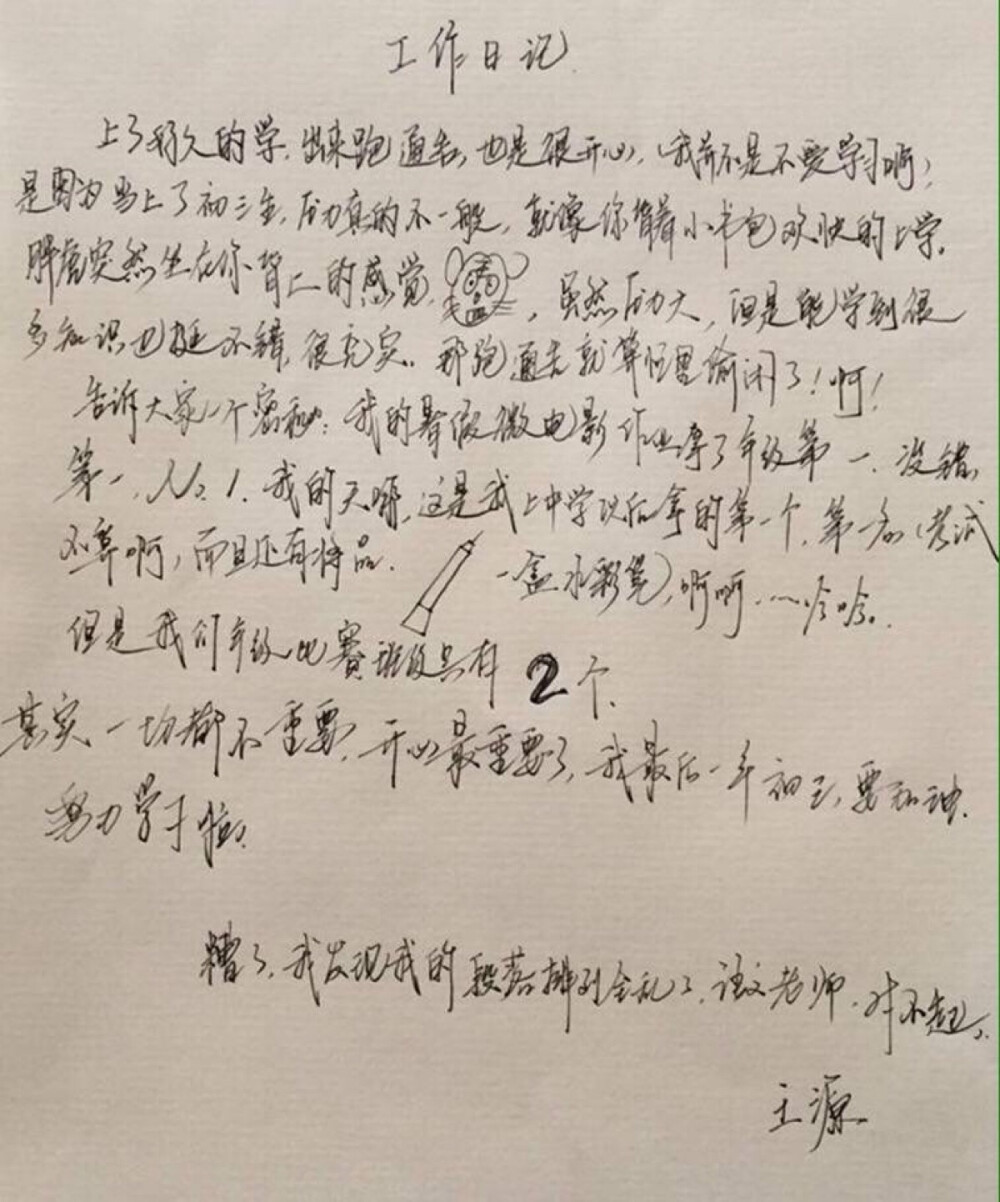 工作日记
上了好久的学,出来跑通告,也是很开心,(我并不是不爱学习啊)
是因为当上了初三生,压力真的不一般,就像你背着小书包欢快的上学,
胖虎突然坐在你背上的感觉,虽然压力大,但是能学到很
多知识也挺不错,很充实。那跑通告就算忙里偷闲了!啊!
告诉大家一个密秘:我的暑假微电影作业拿了年级第一,没错,
第一,No.1,我的天哪,这是我上中学以后拿的第一个,第一名(考试
不算啊,而且还有奖品.一盒水彩笔),啊啊……哈哈。
但是我们年级比赛班级只有2个.
其实一切都不重要,开心最重要了,我最后一年初三,要加油.
努力学习啦.
糟了,我发现我的段落排列全乱了,语文老师,对不起。
王源